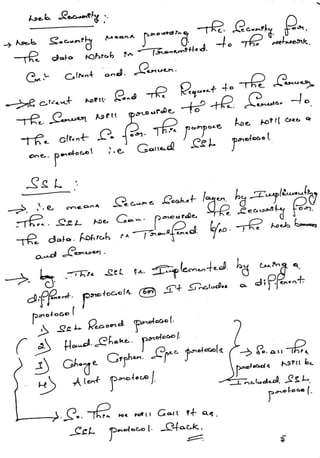 Web Security :
→ Web Security means providing The Security for.
The data which is Transmitted. to The network.
Client and. Server.
→ The client will Send The Request to The Server
→ The Server will provide to the Service to
The client So for. This purpose we will use a
one. protocol i.e Called SSL protocol
SSL :
→ i.e means Secure Socket layer by Implementing
This. SSL we Can. provide The Security for.
The data. which is Transfered b/w. The web browser
and Server.
→ This SSL is Implemented by using a
different protocols (or) It Includes a different
protocol
1) SSL Record protocol.
2) Hand. Shake. protocol
3) Change Cipher. Spec protocols
4) Alert protocol.
→ So. all This
protocols will be
Included, SSL
protocol.
→ So. This we will Call it as.
SSL protocol. Stack.